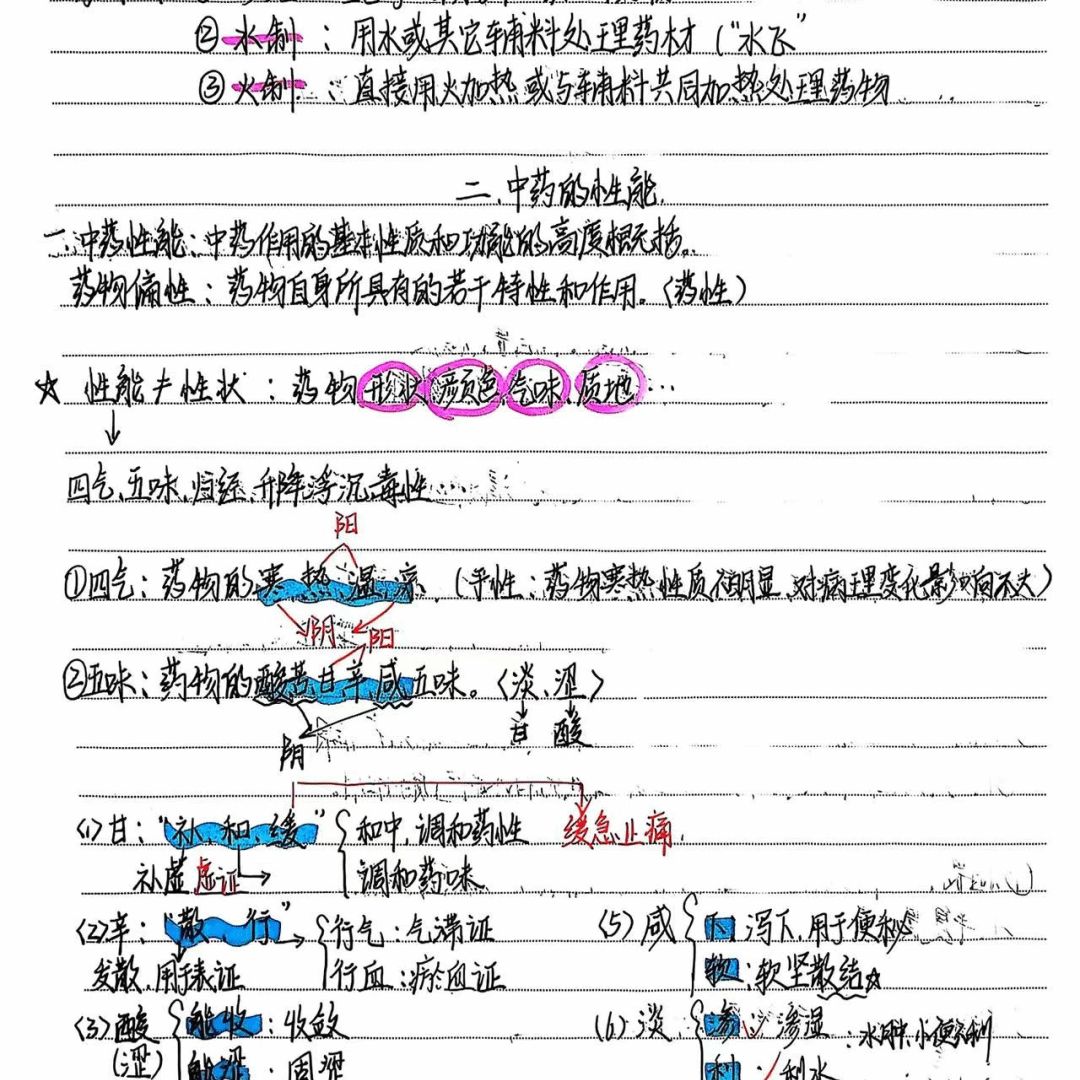 ②水制：用水或其它辅料处理药材（“水飞”
③火制：直接用火加热或与辅料共同加热处理药物
二、中药的性能
一、中药性能：中药作用的基本性质和功能的高度概括。
药物偏性：药物自身所具有的若干特性和作用。（药性）
☆ 性能≠性状：药物形状、颜色、气味、质地…
↓
四气、五味、归经、升降浮沉、毒性…
阳
①四气：药物的寒热温凉（平性：药物寒热性质不明显，对病理变化影响不大）
阴 阳
②五味：药物的酸苦甘辛咸五味。（淡、涩）
甘 酸
阴
(1)甘：“补、和、缓” 和中，调和药性 缓急止痛
补虚 虚证 → 调和药味
(2)辛：“散、行” → 行气：气滞证 (5)咸 下：泻下，用于便秘
发散，用于表证 行血：瘀血证 软：软坚散结☆
(3)酸 能收：收敛 (6)淡 渗：渗湿：水肿，小便不利
(涩) 能涩：固涩 利：利水